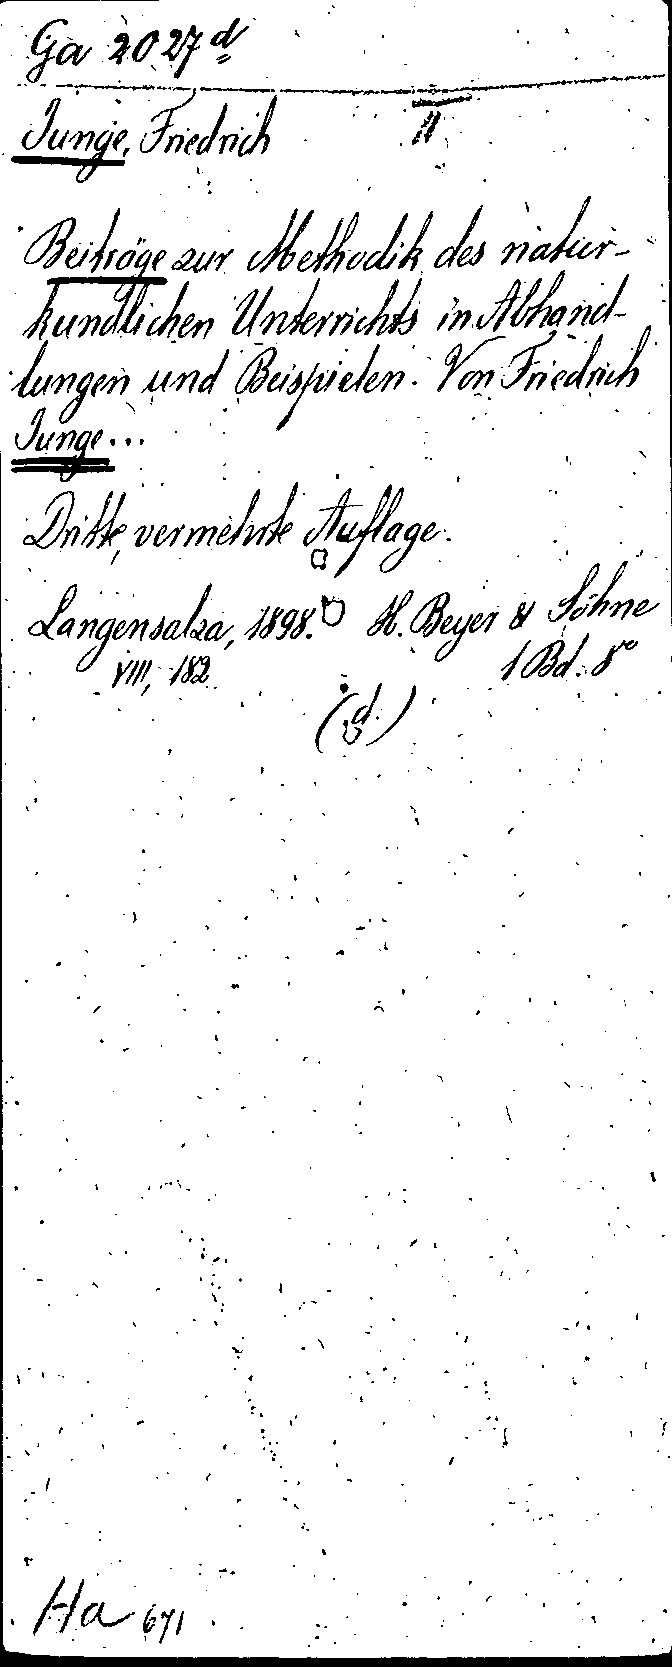 Ga 2027d
Junge, Friedrich
Beiträge zur Methodik des natur-
kundlichen Unterrichts in Abhand-
lungen und Beispielen. Von Friedrich
Junge...
Dritte, vermehrte Auflage.
Langensalza, 1898. H. Beyer & Söhne
VIII, 182 1 Bd. 8°
(d.)
Ha 671